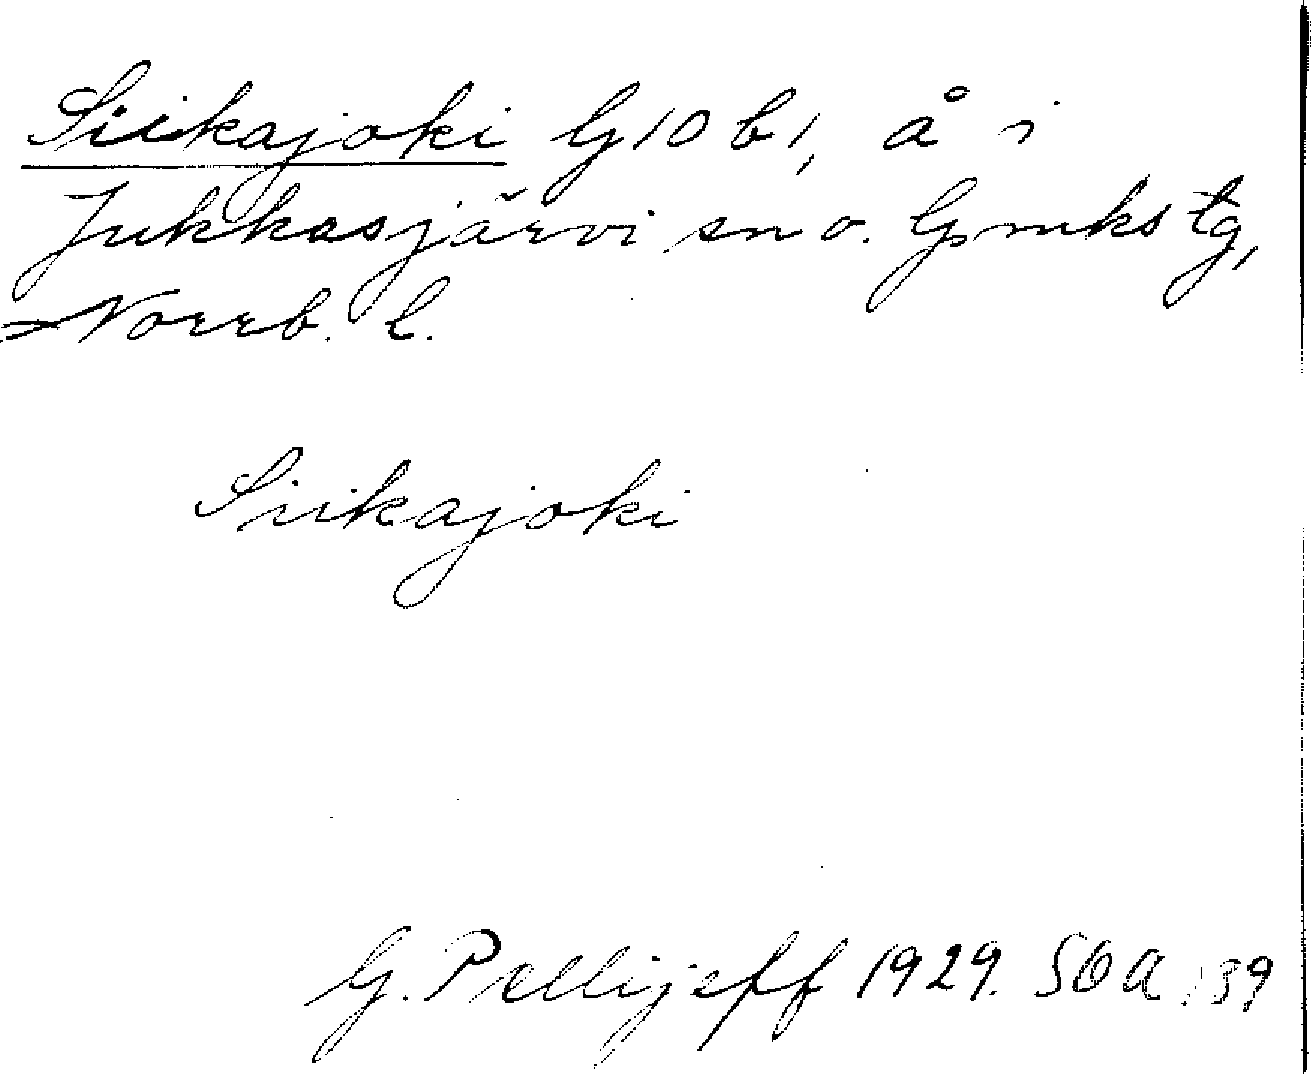 Siikajoki G 10 b 1, å i
Jukkasjärvi sn o. Gmkstg,
Norrb. l.
Siikajoki
G. Pellijeff 1929. SOA :39